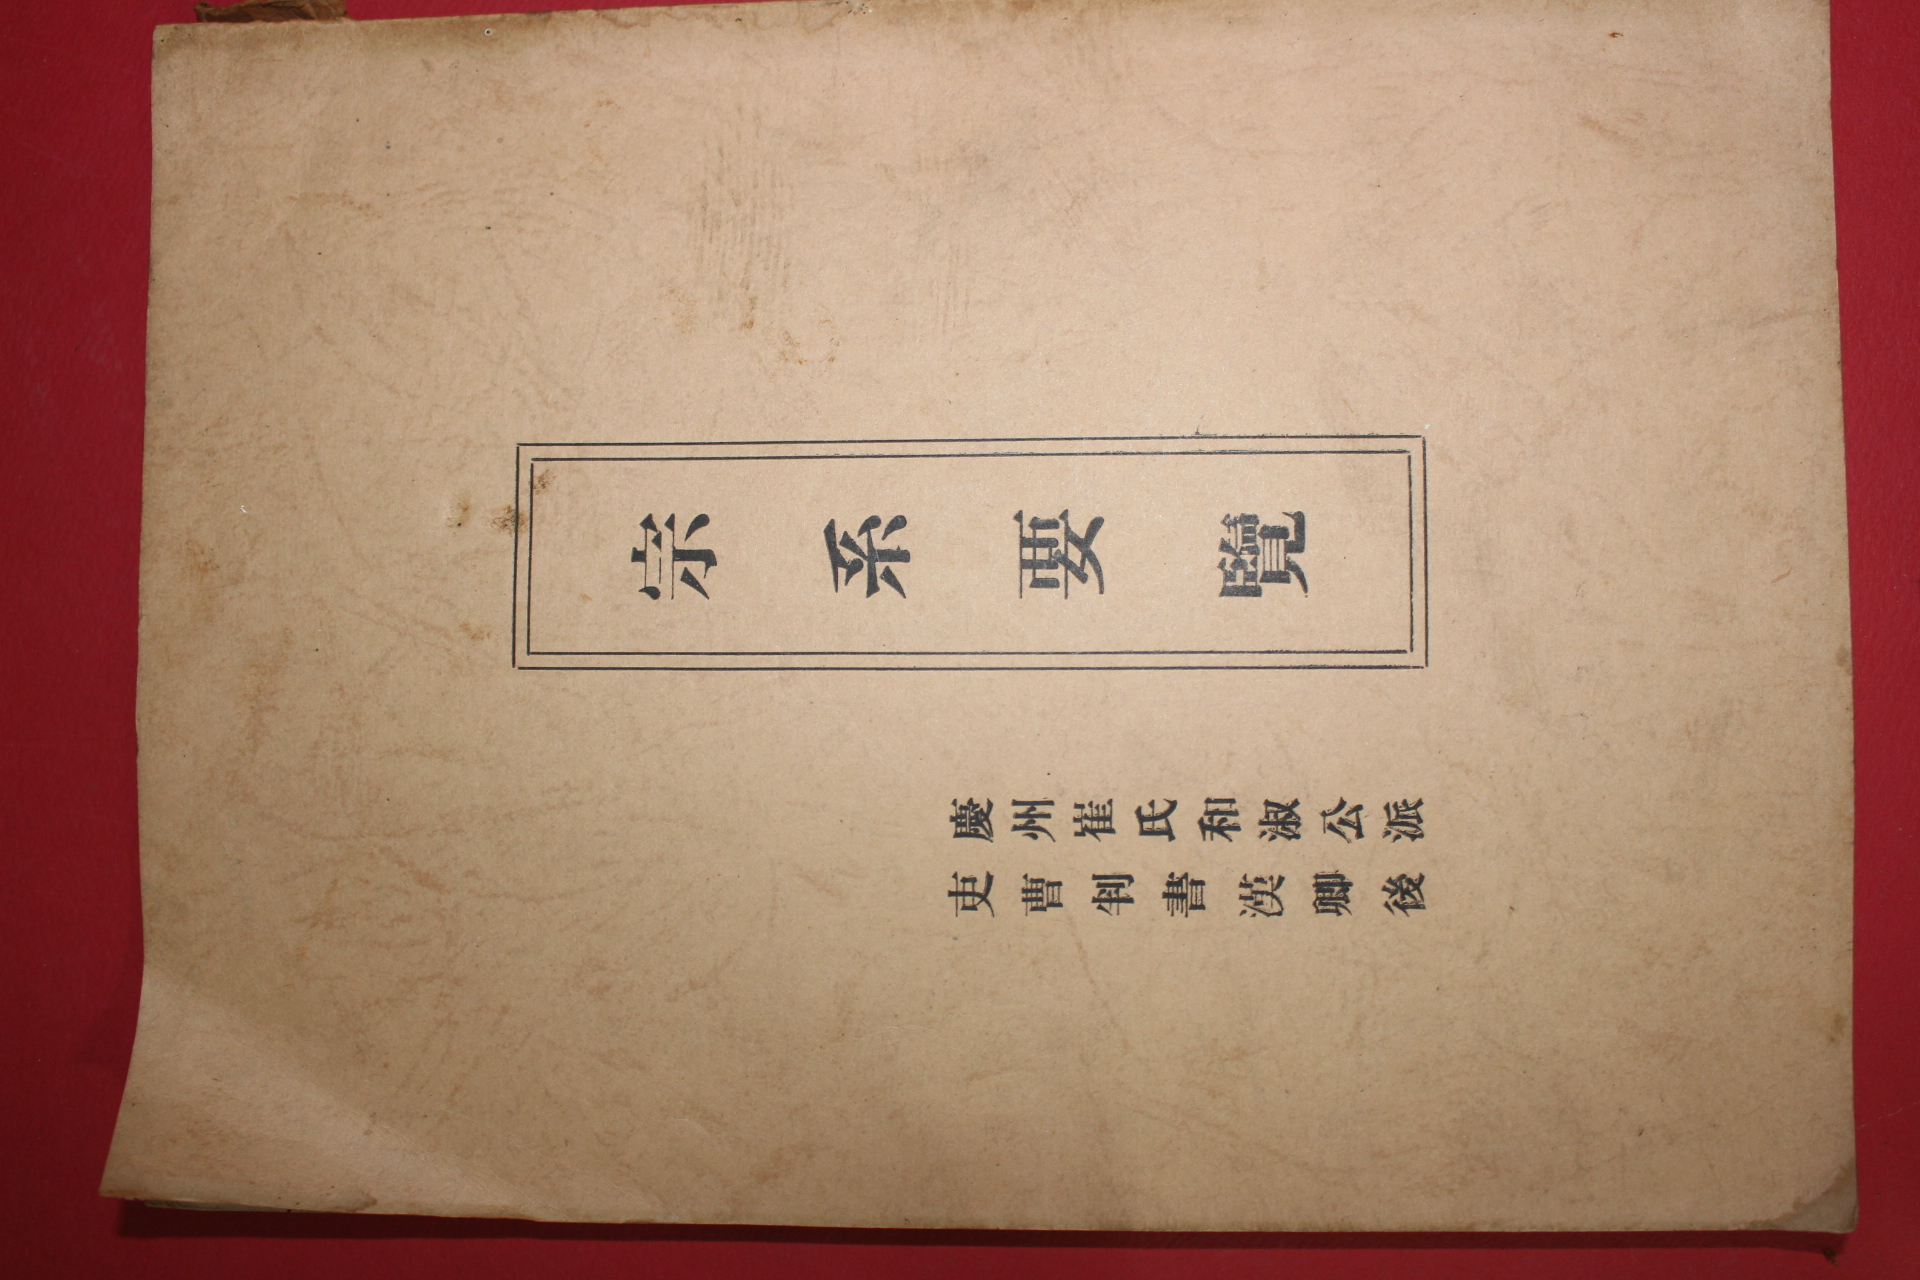 宗系要覽
慶州崔氏和淑公派
吏曹判書漢卿後